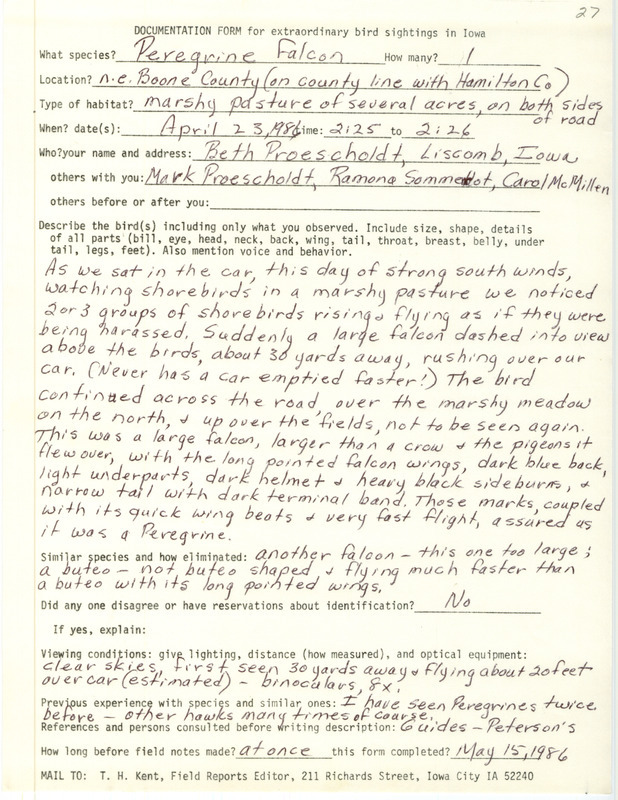 27
DOCUMENTATION FORM for extraordinary bird sightings in Iowa
What species? Peregrine Falcon How many? 1
Location? n.e. Boone County (on county line with Hamilton Co)
Type of habitat? marshy pasture of several acres, on both sides
of road
When? date(s): April 23, 1986 time: 2:25 to 2:26
Who?your name and address: Beth Proescholdt, Liscomb, Iowa
others with you: Mark Proescholdt, Ramona Sommerlot, Carol McMillen
others before or after you:
Describe the bird(s) including only what you observed. Include size, shape, details
of all parts (bill, eye, head, neck, back, wing, tail, throat, breast, belly, under
tail, legs, feet). Also mention voice and behavior.
As we sat in the car, this day of strong south winds,
watching shorebirds in a marshy pasture we noticed
2 or 3 groups of shorebirds rising & flying as if they were
being harassed. Suddenly a large falcon dashed into view
above the birds, about 30 yards away, rushing over our
car. (Never has a car emptied faster!) The bird
continued across the road, over the marshy meadow
on the north, & up over the fields, not to be seen again.
This was a large falcon, larger than a crow & the pigeons it
flew over, with the long pointed falcon wings, dark blue back,
light underparts, dark helmet & heavy black sideburns, &
narrow tail with dark terminal band. Those marks, coupled
with its quick wing beats & very fast flight, assured us
it was a Peregrine.
Similar species and how eliminated: another falcon - this one too large;
a buteo - not buteo shaped & flying much faster than
a buteo with its long pointed wings.
Did any one disagree or have reservations about identification? No
If yes, explain:
Viewing conditions: give lighting, distance (how measured), and optical equipment:
clear skies, first seen 30 yards away & flying about 20 feet
over car (estimated) - binoculars, 8x.
Previous experience with species and similar ones: I have seen Peregrines twice
before - other hawks many times of course.
References and persons consulted before writing description: Guides - Peterson's
How long before field notes made? at once this form completed? May 15, 1986
MAIL TO: T. H. Kent, Field Reports Editor, 211 Richards Street, Iowa City IA 52240